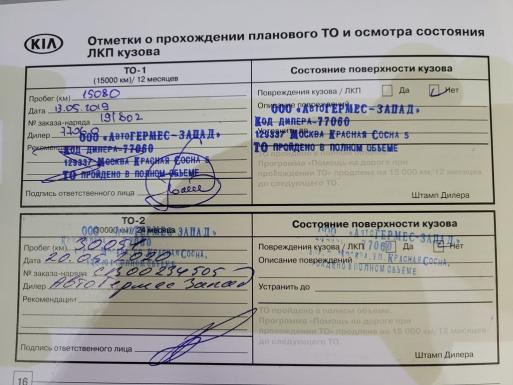 KIA
Отметки о прохождении планового ТО и осмотра состояния
ЛКП кузова
ТО-1
(15000 км)/ 12 месяцев
Пробег (км) 15080
Дата 13.05.2019
№ заказа-наряда
Дилер 77060
ООО «АвтоГЕРМЕС-ЗАПАД»
Код дилера-77060
129337 Москва Красная Сосна 5
ТО пройдено в полном объеме
Подпись ответственного лица
Состояние поверхности кузова
Повреждения кузова / ЛКП Да Нет
Описание повреждений
ООО «АвтоГЕРМЕС-ЗАПАД»
Код дилера-77060
Устранить до
129337 Москва Красная Сосна 5
ТО пройдено в полном объеме
ТО пройдено в полном объеме.
Программа «Помощь на дороге при
прохождении ТО» продлена на 15 000 км/12 месяцев
до следующего ТО.
Штамп Дилера
ТО-2
24 месяца
ООО «АвтоГЕРМЕС-ЗАПАД»
Пробег (км)
Дата
№ заказа-наряда
Дилер АвтоГермес Запад
Рекомендации
Подпись ответственного лица
Состояние поверхности кузова
Повреждения кузова / ЛКП Нет
77060
Описание повреждений
Москва, ул. Красная Сосна,
в полном объеме
Устранить до
ТО пройдено в полном объеме.
Программа «Помощь на дороге при
прохождении ТО» продлена на 15 000 км/12 месяцев
до следующего ТО.
Штамп Дилера
16